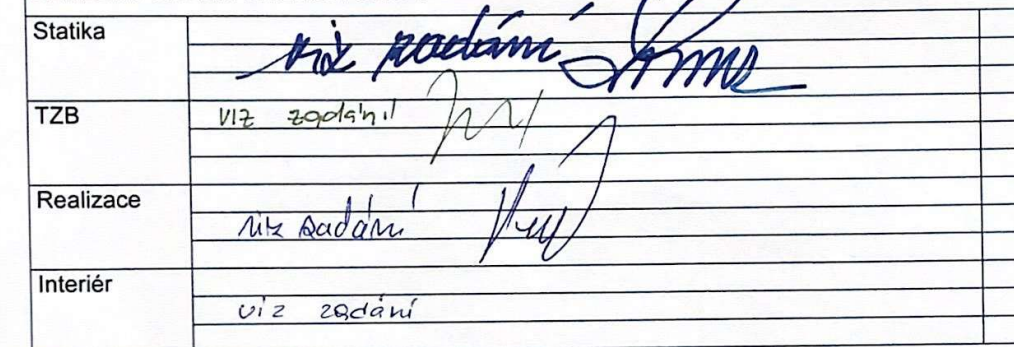 Statika
viz zadání
TZB
viz zadání
Realizace
viz zadání
Interiér
viz zadání